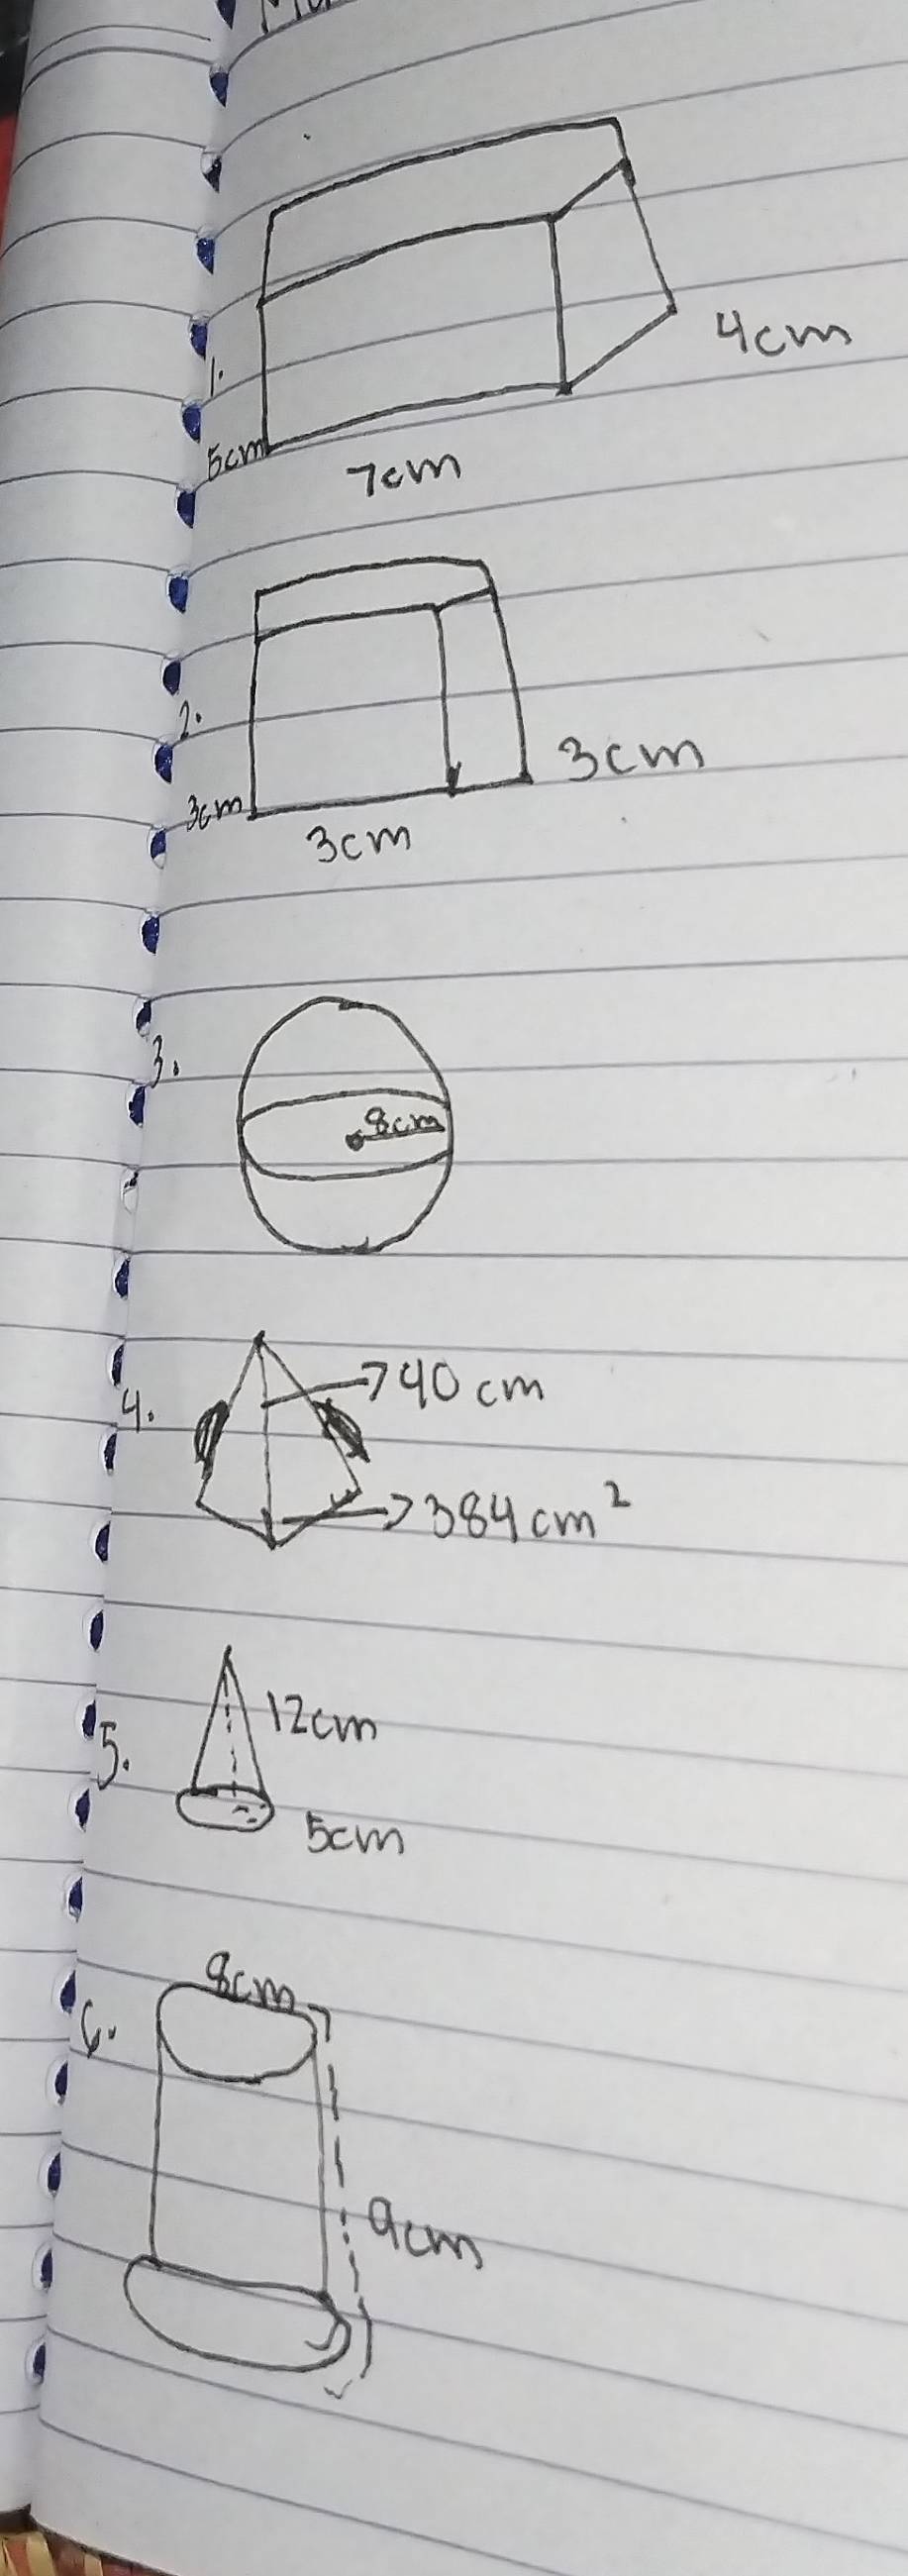 1.
4cm
5cm
7cm
2.
3cm
3cm
3cm
3.
8cm
4.
40 cm
384cm²
5.
12cm
5cm
6.
8cm
9cm